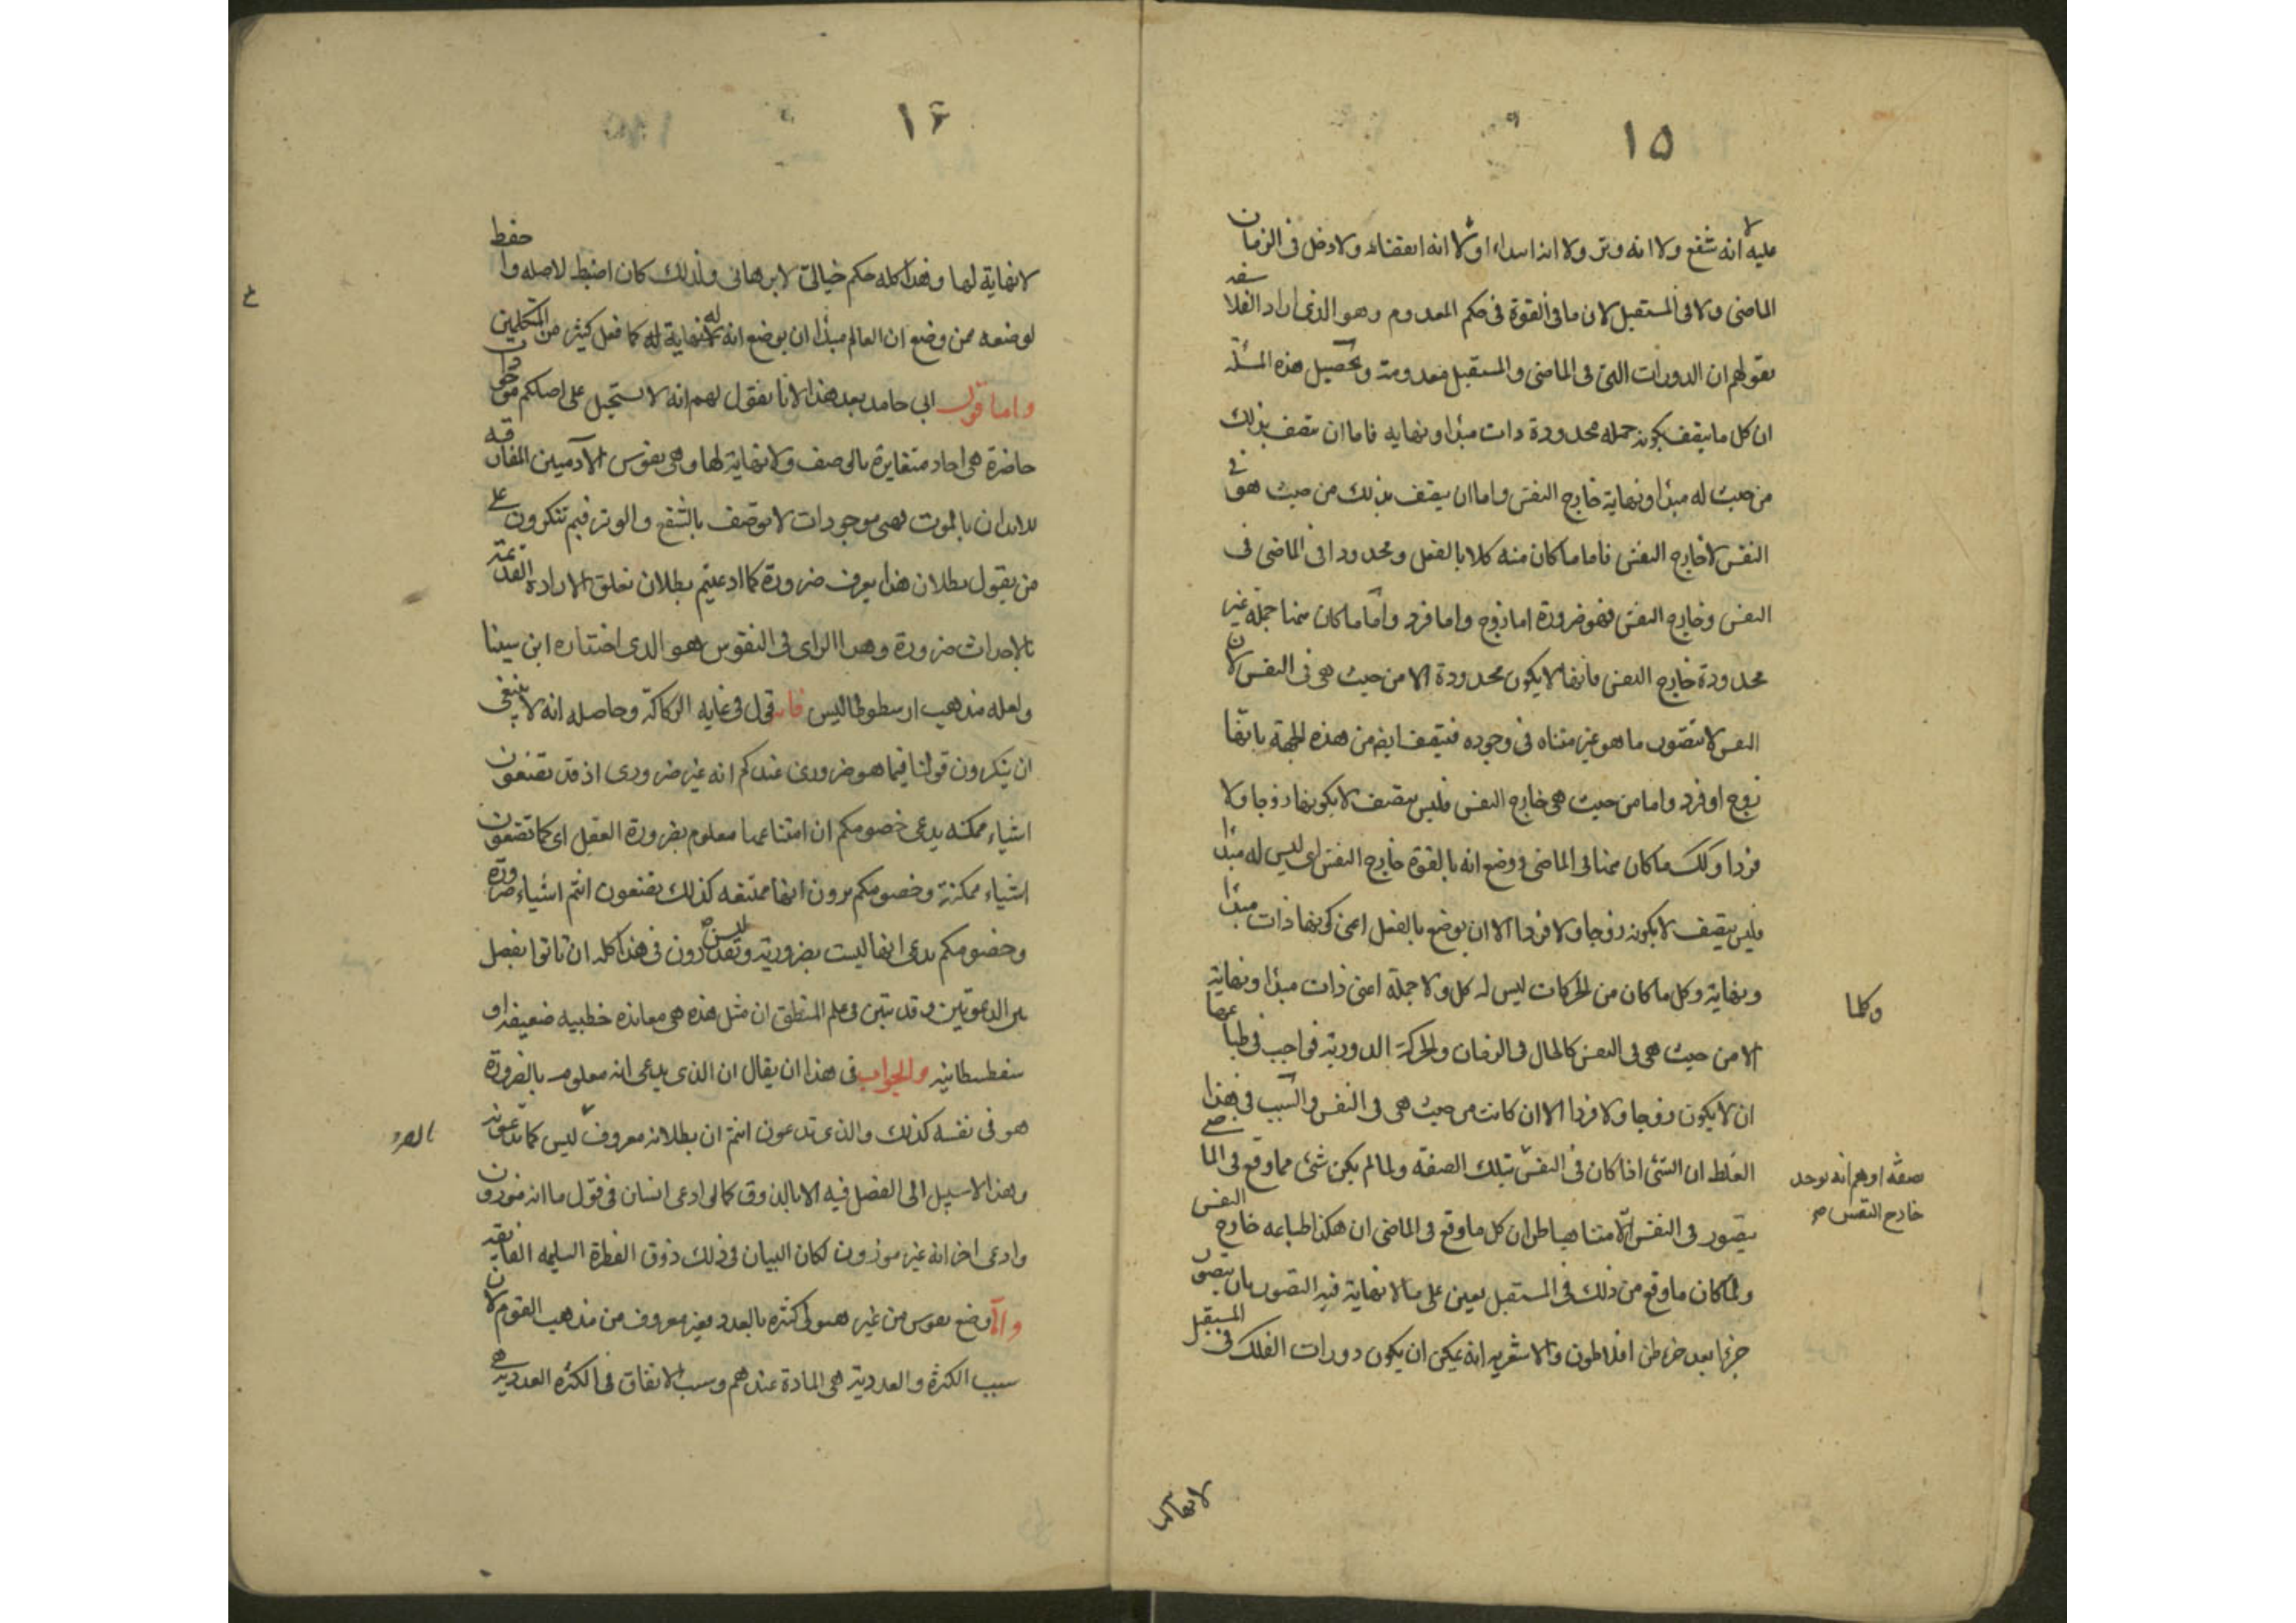 ١٥
عليه لا انه شفع ولا انه وتر ولا انه ابتداء ولا انه انقضاء ولا دخل فى الزمان
الماضى ولا فى المستقبل لان ما فى القوة فى حكم المعدوم وهو الذى اراد الفلاسفه
بقولهم ان الدورات التى فى الماضى والمستقبل معدومة وتحصيل هذه المسئلة
ان كل ما يتصف بكونه جملة محدودة ذات مبدا ونهايه فاما ان يتصف بذلك
من حيث له مبدا ونهاية خارج النفس واما ان يتصف بذلك من حيث هو فى
النفس لا خارج النفس فاما ما كان منه كلا بالفعل ومحدودا فى الماضى فى
النفس وخارج النفس فهو ضرورة اما زوج واما فرد واما ما كان منها جملة غير
محدودة خارج النفس فانها لا يكون محدودة الا من حيث هى فى النفس لان
النفس لا تتصور ما هو غير متناه فى وجوده فتتصف ايضا من هذه الجهة بانها
زوج او فرد واما من حيث هى خارج النفس فليس يتصف لا بكونها زوجا ولا
فردا وكذلك ما كان منها فى الماضى ووضع انه بالقوة خارج النفس اى ليس له مبدا
فليس يتصف لا بكونه زوجا ولا فردا الا ان يوضع بالفعل اعنى كونها ذات مبدا
ونهاية وكل ما كان من الحركات ليس له كل ولا جملة اعنى ذات مبدا ونهاية
وكلما
الا من حيث هى فى النفس كالحال فى الزمان والحركة الدورية فواجب فى طباعها
ان لا يكون زوجا ولا فردا الا ان كانت من حيث هى فى النفس والسبب فى هذا
الغلط ان الشئ اذا كان فى النفس بتلك الصفة ولما لم يكن شئ مما وقع فى الماضى
صفة اوهم انه يوجد
خارج النفس
يتصور فى النفس الا متناهيا ظن ان كل ما وقع فى الماضى ان هكذا طباعه خارج النفس
ولما كان ما وقع من ذلك فى المستقبل يعين على ما لا نهاية فيه التصور بان يتصور
جزءا بعد جزء ظن افلاطون والاشعريه انه يمكن ان يكون دورات الفلك فى المستقبل
لا نهاية لها
١٦
لا نهاية لها وهذا كله حكم خيالى لا برهانى ولذلك كان اضبط لاصله واحفظ
لوضعه ممن وضع ان العالم مبدا ان يوضع انه لا نهاية له كما فعل كثير من المتكلمين
واما قول ابى حامد بعد هذا لانا نقول لهم انه لا يستحيل على اصلكم موجودات
حاضرة هى احاد متغايرة بالوصف ولا نهاية لها وهى نفوس الآدميين المفارقه
للابدان بالموت فهى موجودات لا توصف بالشفع والوتر فبم تنكرون على
من يقول بطلان هذا يعرف ضرورة كما ادعيتم بطلان تعلق الارادة القديمة
بالاحداث ضرورة وهذا الراى فى النفوس هو الذى اختاره ابن سينا
ولعله مذهب ارسطوطاليس فانه قول فى غايه الركاكة وحاصله انه لا ينبغى
ان ينكرون قولنا فيما هو ضرورى عندكم انه غير ضرورى اذ قد تضعون
اشياء ممكنه يدعى خصومكم ان امتناعها معلوم بضرورة العقل اى كما تضعون
اشياء ممكنة وخصومكم يرون انها ممتنعه كذلك تضعون انتم اشياء ضرورة
وخصومكم يدعى انها ليست بضرورية وليس تقدرون فى هذا كله ان تاتوا بفصل
بين الدعوتين وقد تبين فى علم المنطق ان مثل هذه هى معانده خطبيه ضعيفه او
سفسطانيه والجواب فى هذا ان يقال ان الذى يدعى انه معلوم بالضرورة
هو فى نفسه كذلك والذى تدعون انتم ان بطلانه معروف ليس كما تدعونه
وهذا لا سبيل الى الفصل فيه الا بالذوق كما لو ادعى انسان فى قول ما انه موزون
وادعى اخر انه غير موزون لكان البيان فى ذلك ذوق الفطرة السليمه الفايقه
واما وضع نفوس من غير هيولى كثيرة بالعدد فغير معروف من مذهب القوم لان
سبب الكثرة والعددية هى المادة عندهم وسبب الاتفاق فى الكثره العدديه هى